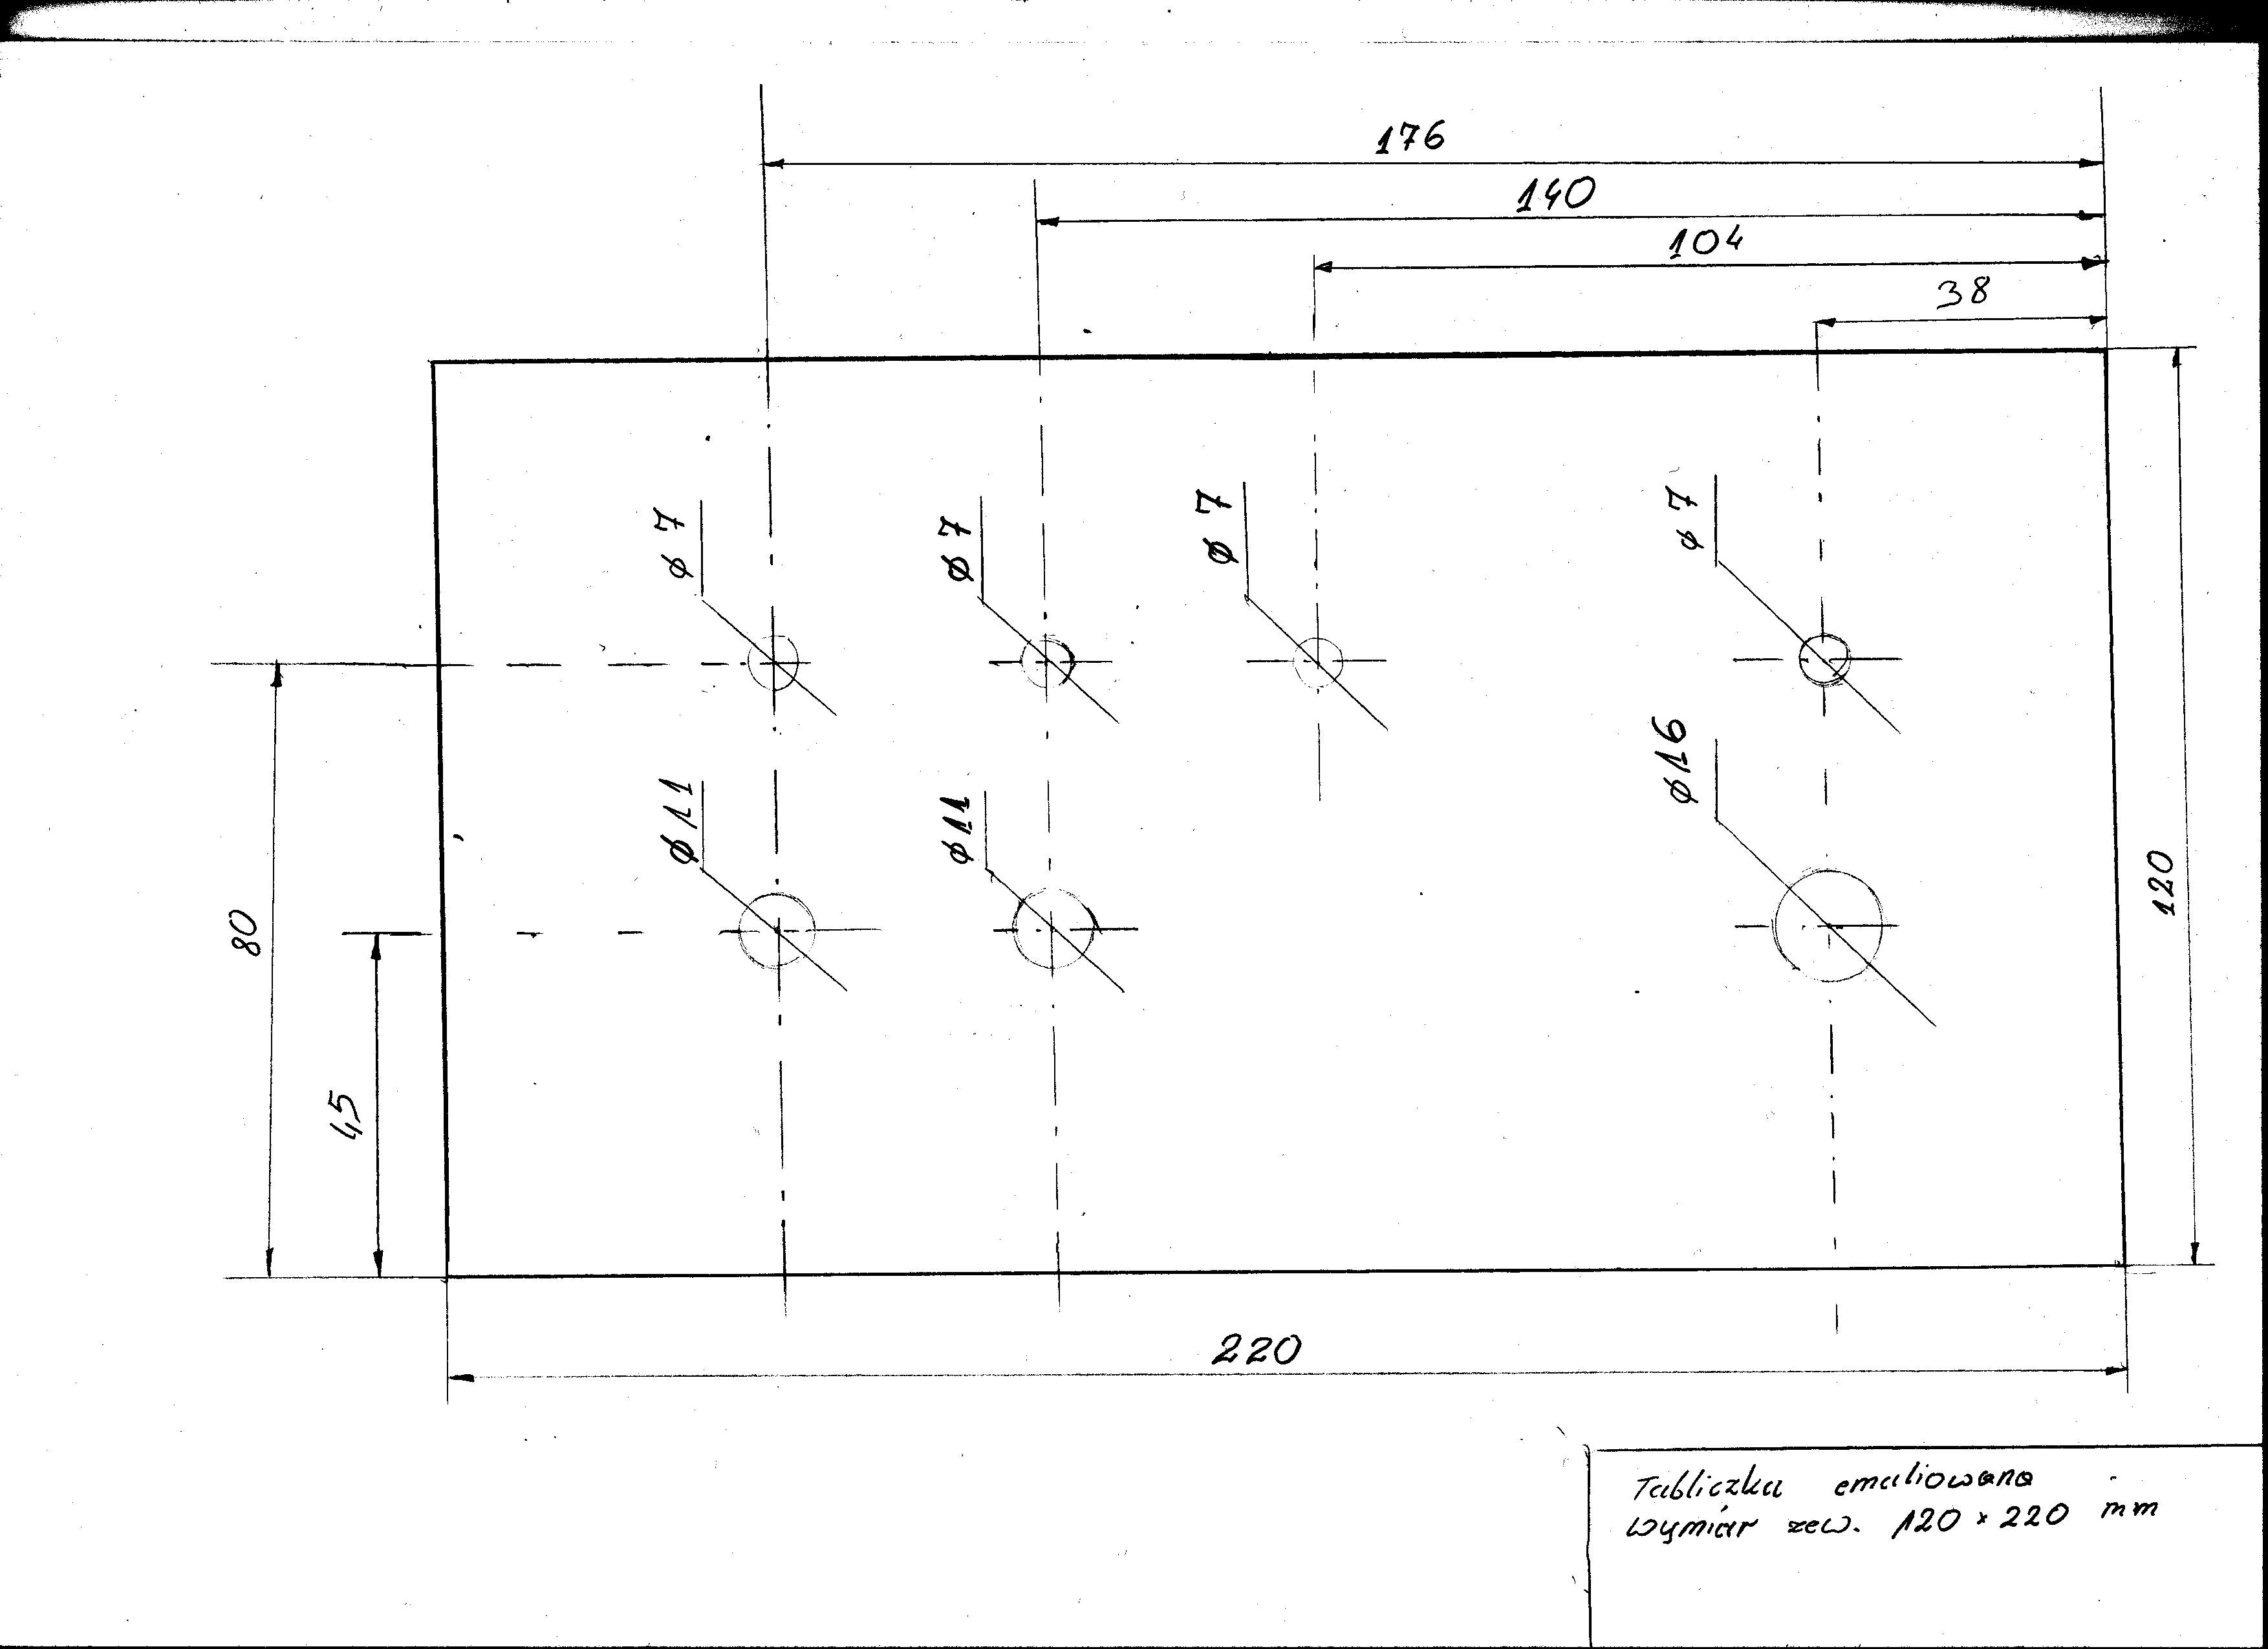 176
140
104
38
ø 7
ø 7
ø 7
ø 7
ø 16
ø 11
ø 11
80
45
120
220
Tabliczka emaliowana
wymiar zew. 120 × 220 mm